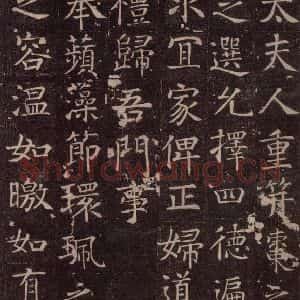 太夫人重棗之
之選允擇四德遍
求宜家俾正婦道
禮歸吾門事
奉蘋藻節環珮之
之容温如皦如有
Shufawang.CN